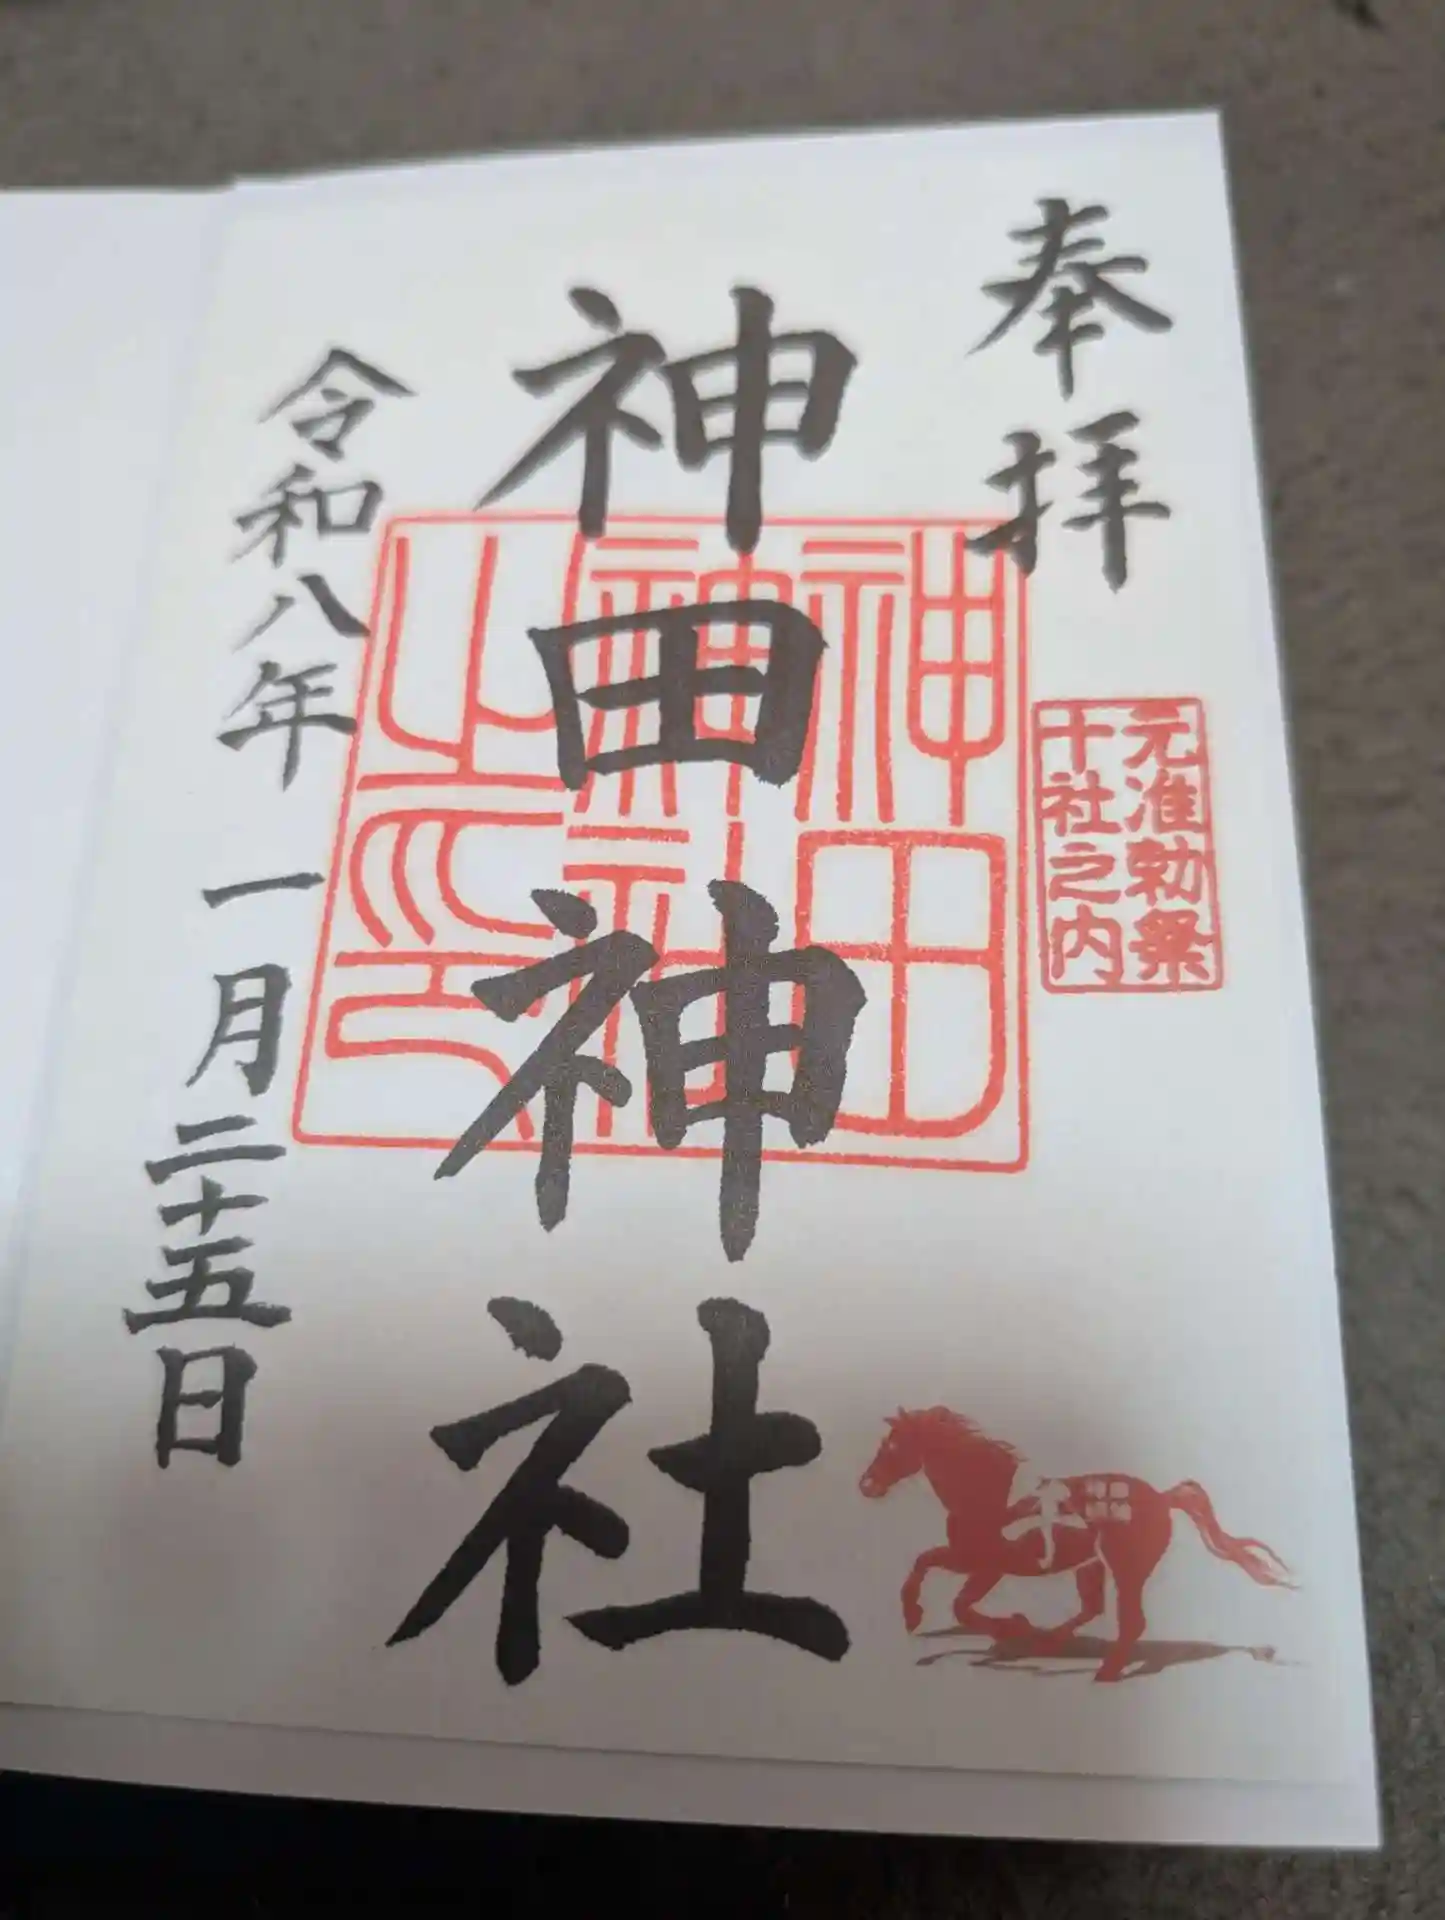 奉拝
元准勅祭
十社之内
神田神社
神田
神社
之印
令和八年 一月二十五日
午